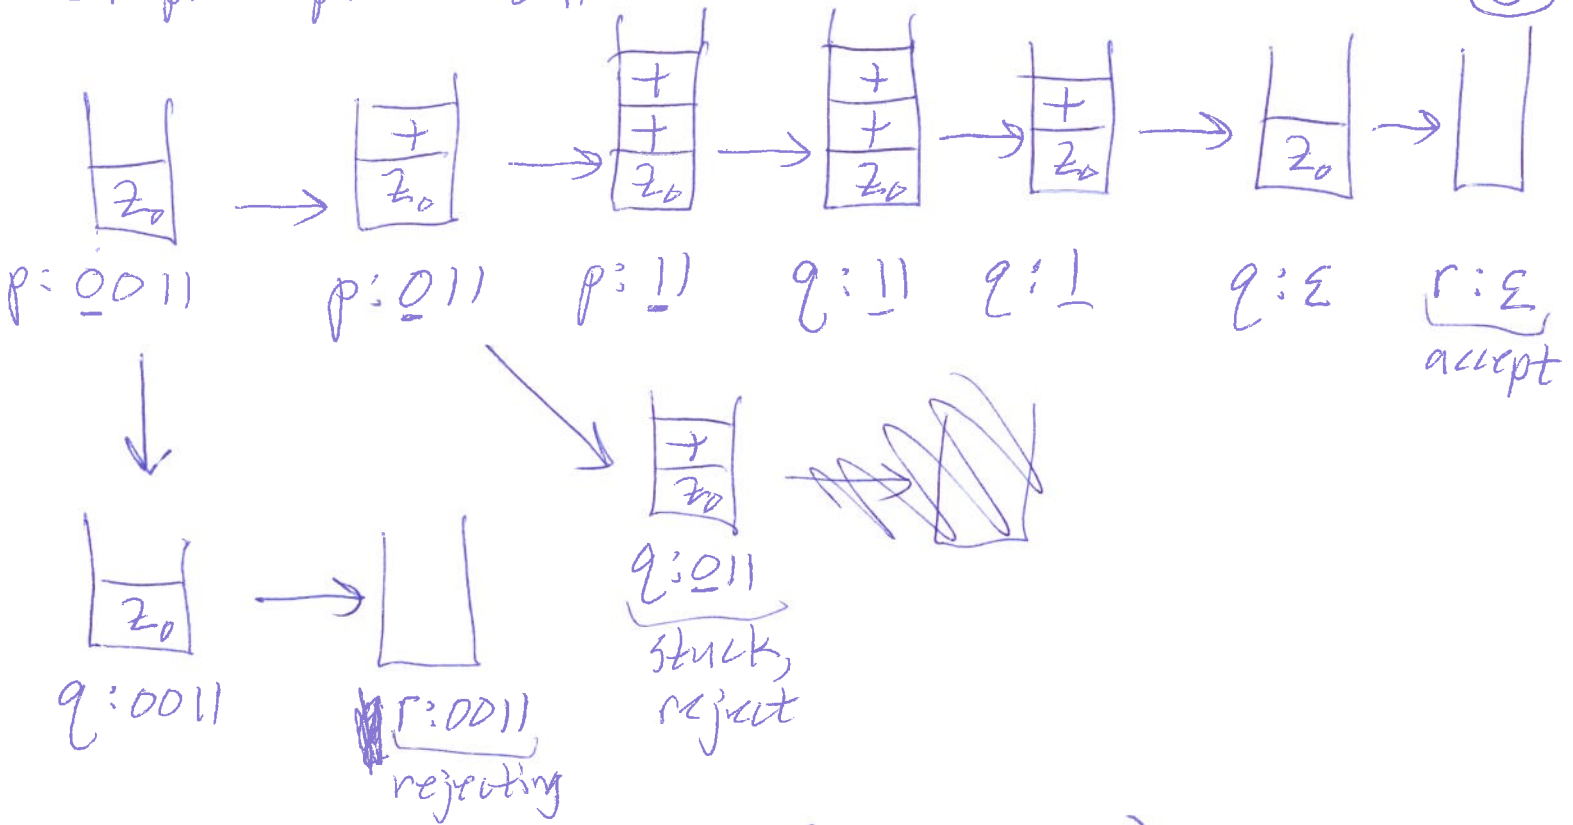 + + +
+ + + +
Z₀ Z₀ Z₀ Z₀ Z₀ Z₀
p: 0011 p: 011 p: 11 q: 11 q: 1 q: ε r: ε
accept
+
Z₀
q: 011
Z₀
stuck,
reject
q: 0011 r: 0011
rejecting